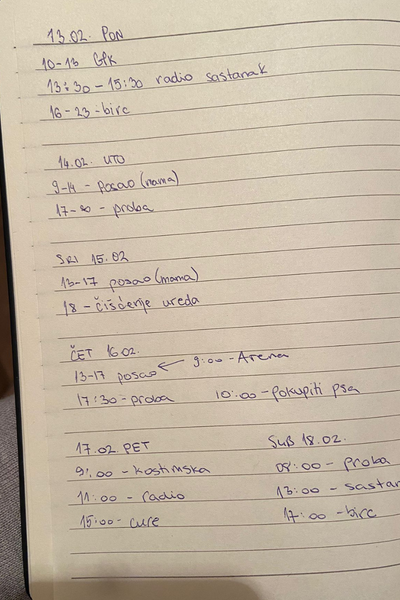 13.02. PON
10-13 GFK
13:30 - 15:30 radio sastanak
16 - 23 - birc
14.02. UTO
9-14 - posao (mama)
17-∞ - proba
SRI 15.02
13-17 posao (mama)
18 - čišćenje ureda
ČET 16.02.
13-17 posao ← 9:00 - Arena
17:30 - proba 10:00 - pokupiti psa
17.02. PET
9:00 - kostimska
11:00 - radio
15:00 - cure
SUB 18.02.
08:00 - proba
13:00 - sastan
17:00 - birc